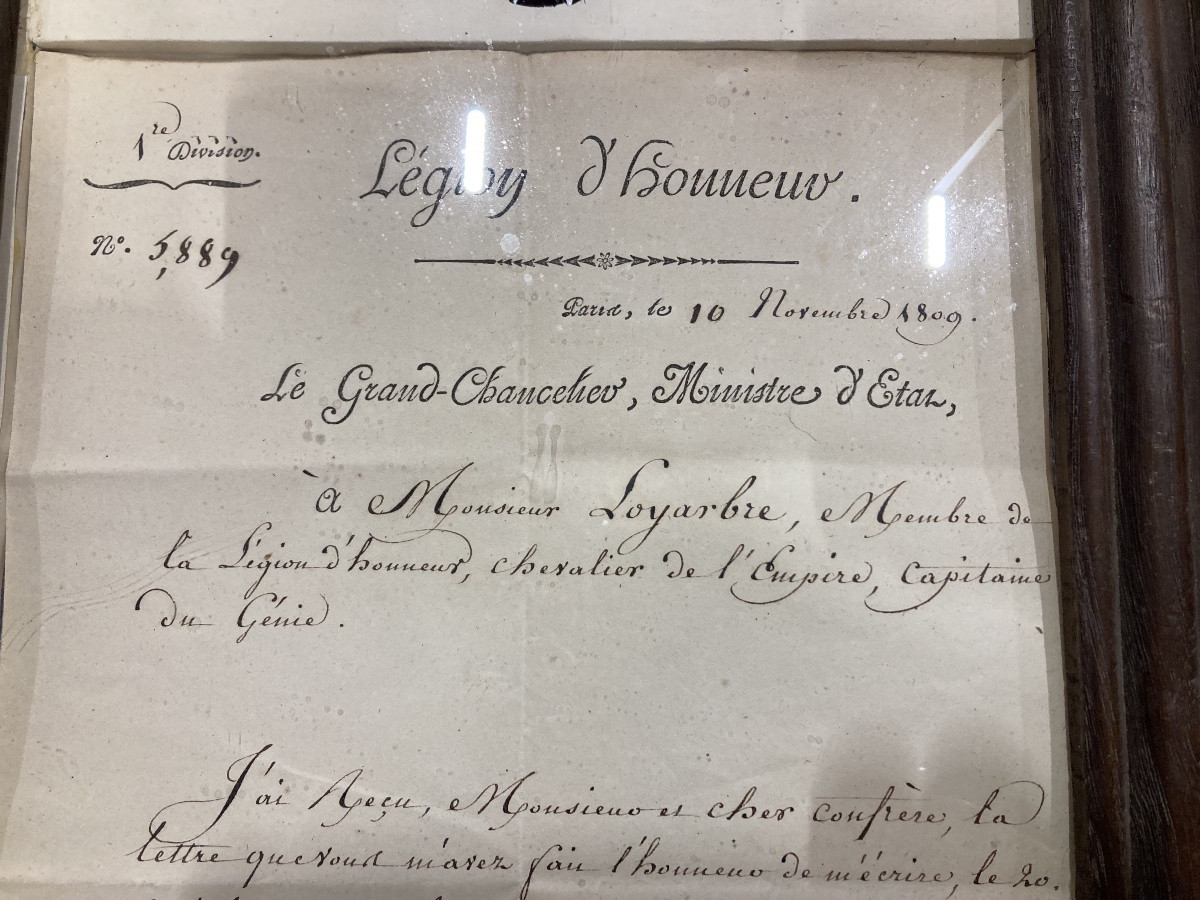 1re Division.
Légion d'honneur.
No. 5,889
Paris, le 10 Novembre 1809.
Le Grand-Chancelier, Ministre d'Etat,
à Monsieur Loyarbre, Membre de
la Légion d'honneur, chevalier de l'Empire, Capitaine
du Génie.
J'ai Reçu, Monsieur et cher confrère, la
lettre que vous m'avez fait l'honneur de m'écrire, le 20.